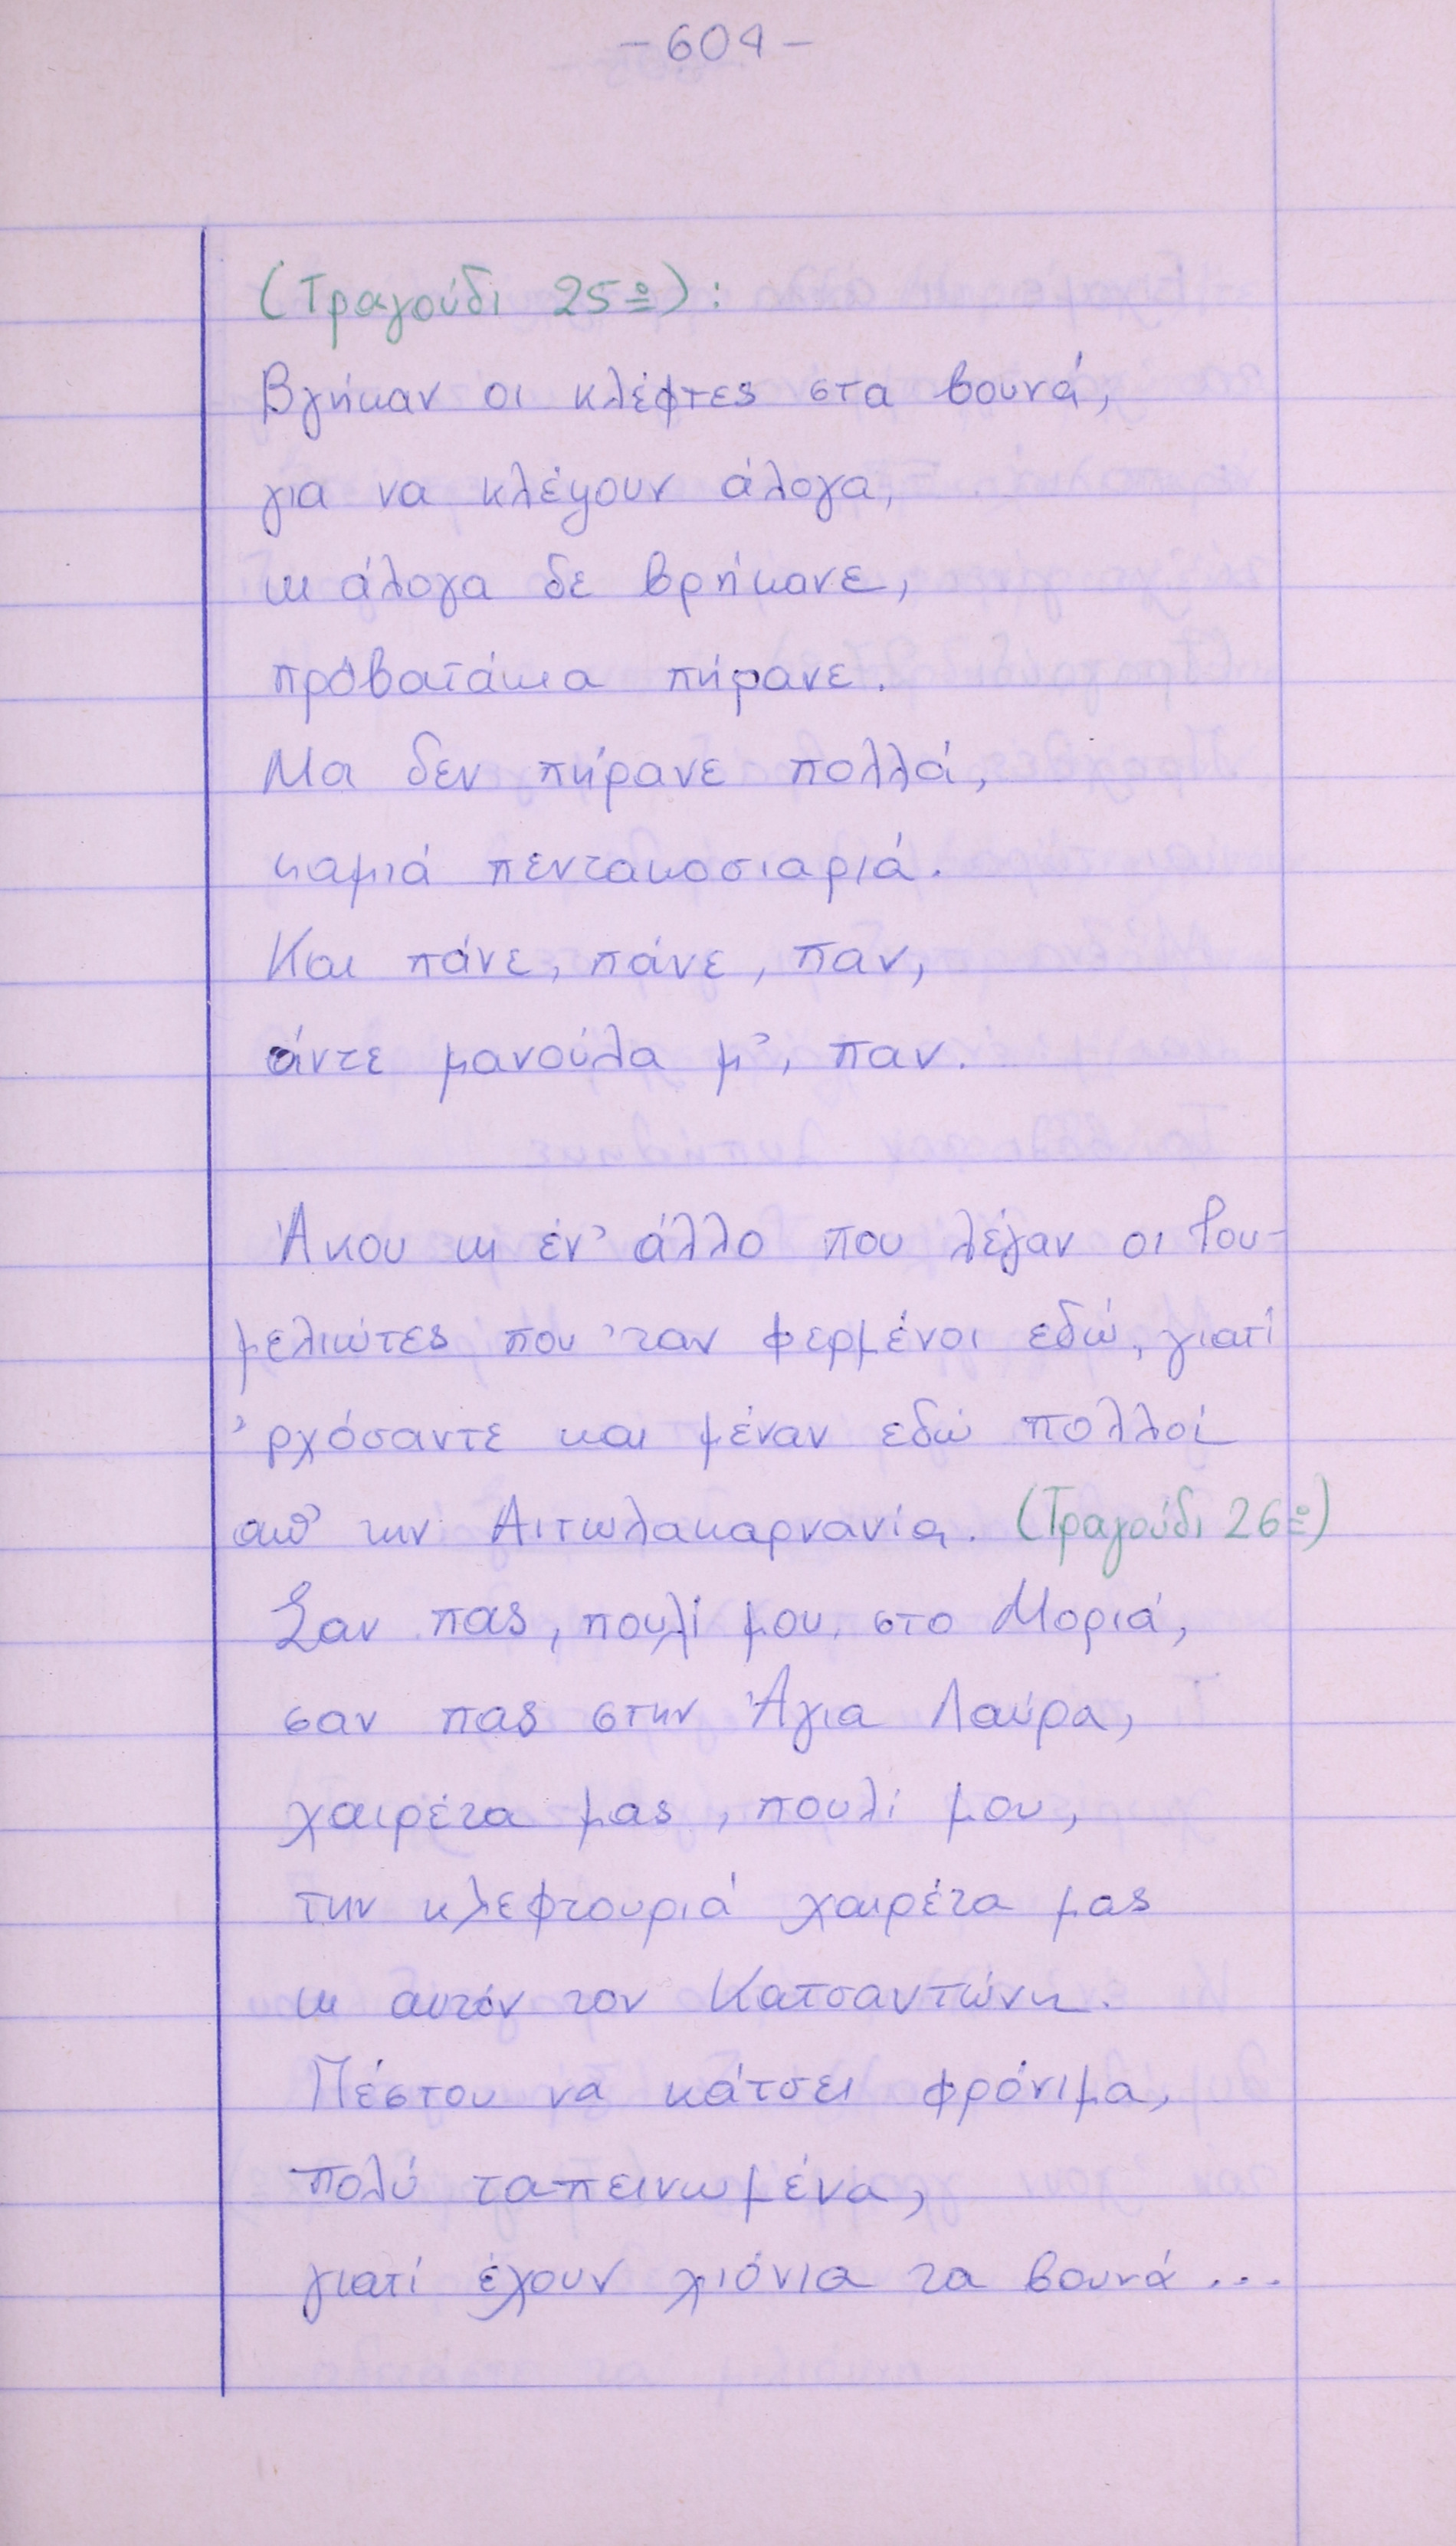 -604-
(Τραγούδι 25º):
Βγήκαν οι κλέφτες στα βουνά,
για να κλέψουν άλογα,
κι άλογα δε βρήκανε,
προβατάκια πήρανε.
Μα δεν πήρανε πολλά,
καμιά πεντακοσιαριά.
Και πάνε, πάνε, παν,
άντε μανούλα μ', παν.
Άκου κι έν' άλλο που λέγαν οι Ρου-
μελιώτες που 'ταν φερμένοι εδώ, γιατί
'ρχόσαντε και μέναν εδώ πολλοί
απ' την Αιτωλακαρνανία. (Τραγούδι 26º)
Σαν πας, πουλί μου, στο Μοριά,
σαν πας στην Άγια Λαύρα,
χαιρέτα μας, πουλί μου,
την κλεφτουριά χαιρέτα μας
κι αυτόν τον Κατσαντώνη.
Πέστου να κάτσει φρόνιμα,
πολύ ταπεινωμένα,
γιατί έχουν χιόνια τα βουνά...